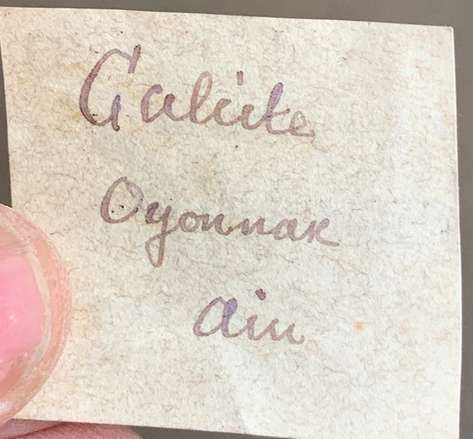 Calcite
Oyonnax
Ain